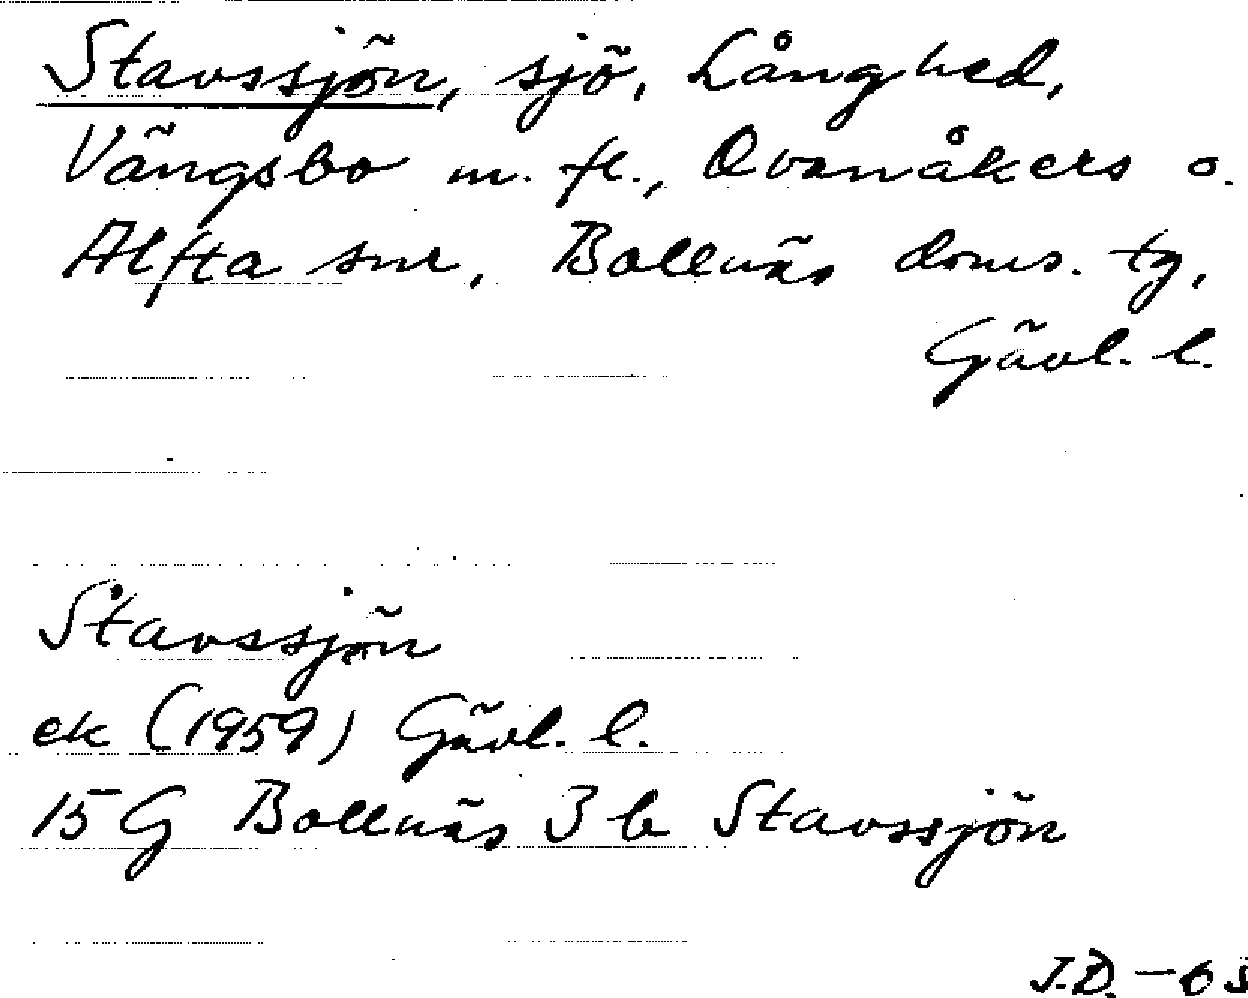 Stavssjön, sjö, Långhed,
Vängsbo m. fl., Ovanåkers o.
Alfta snr, Bollnäs doms. tg,
Gävl. l.
Stavssjön
ek (1959) Gävl. l.
15 G Bollnäs 3 b Stavssjön
J.D. -65